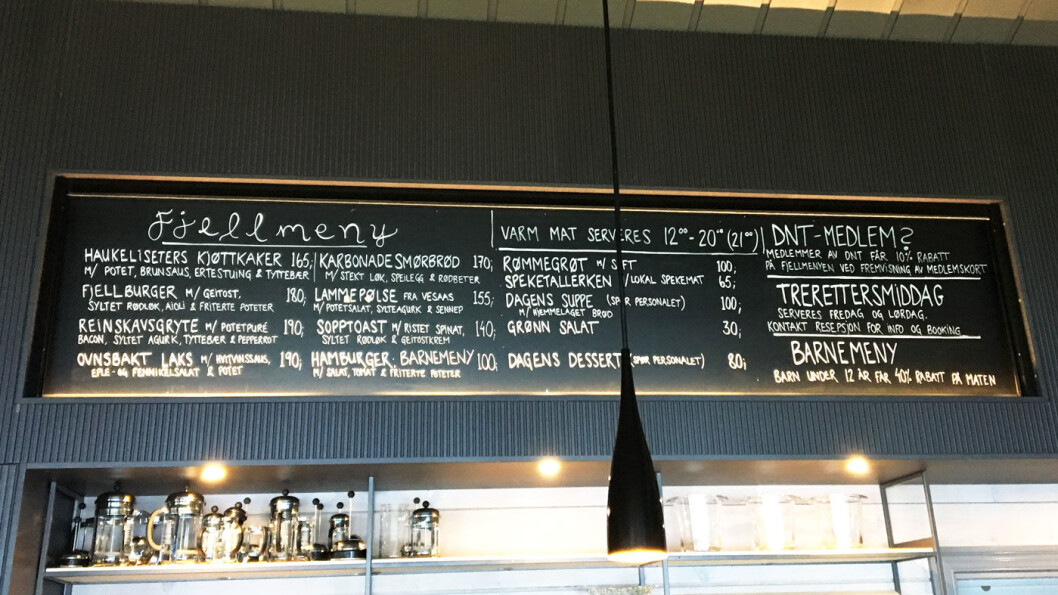 Fjellmeny
HAUKELISETERS KJØTTKAKER 165;
M/ POTET, BRUNSAUS, ERTESTUING & TYTTEBÆR
FJELLBURGER M/ GEITOST, 180;
SYLTET RØDLØK, AIOLI & FRITERTE POTETER
REINSKAVSGRYTE M/ POTETPURÉ 190;
BACON, SYLTET AGURK, TYTTEBÆR & PEPPERROT
OVNSBAKT LAKS M/ HVITVINSSAUS, 190;
EPLE- OG FENNIKELSALAT & POTET
KARBONADESMØRBRØD 170;
M/ STEKT LØK, SPEILEGG & RØDBETER
LAMMEPØLSE FRA VESAAS 155;
M/ POTETSALAT, SYLTEAGURK & SENNEP
SOPPTOAST M/ RISTET SPINAT, 140;
SYLTET RØDLØK & GEITOSTKREM
HAMBURGER, BARNEMENY 100;
M/ SALAT, TOMAT & FRITERTE POTETER
VARM MAT SERVERES 12⁰⁰-20⁰⁰ (21⁰⁰)
RØMMEGRØT M/ SAFT 100;
SPEKETALLERKEN M/ LOKAL SPEKEMAT 65;
DAGENS SUPPE (SPØR PERSONALET) 100;
M/ HJEMMELAGET BRØD
GRØNN SALAT 30;
DAGENS DESSERT (SPØR PERSONALET) 80;
DNT-MEDLEM?
MEDLEMMER AV DNT FÅR 10% RABATT
PÅ FJELLMENYEN VED FREMVISNING AV MEDLEMSKORT
TRERETTERSMIDDAG
SERVERES FREDAG OG LØRDAG.
KONTAKT RESEPSJON FOR INFO OG BOOKING
BARNEMENY
BARN UNDER 12 ÅR FÅR 40% RABATT PÅ MATEN